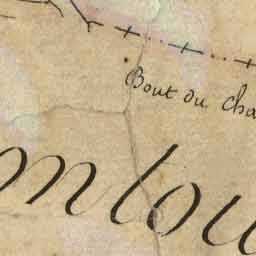 Bout du cha
onlou